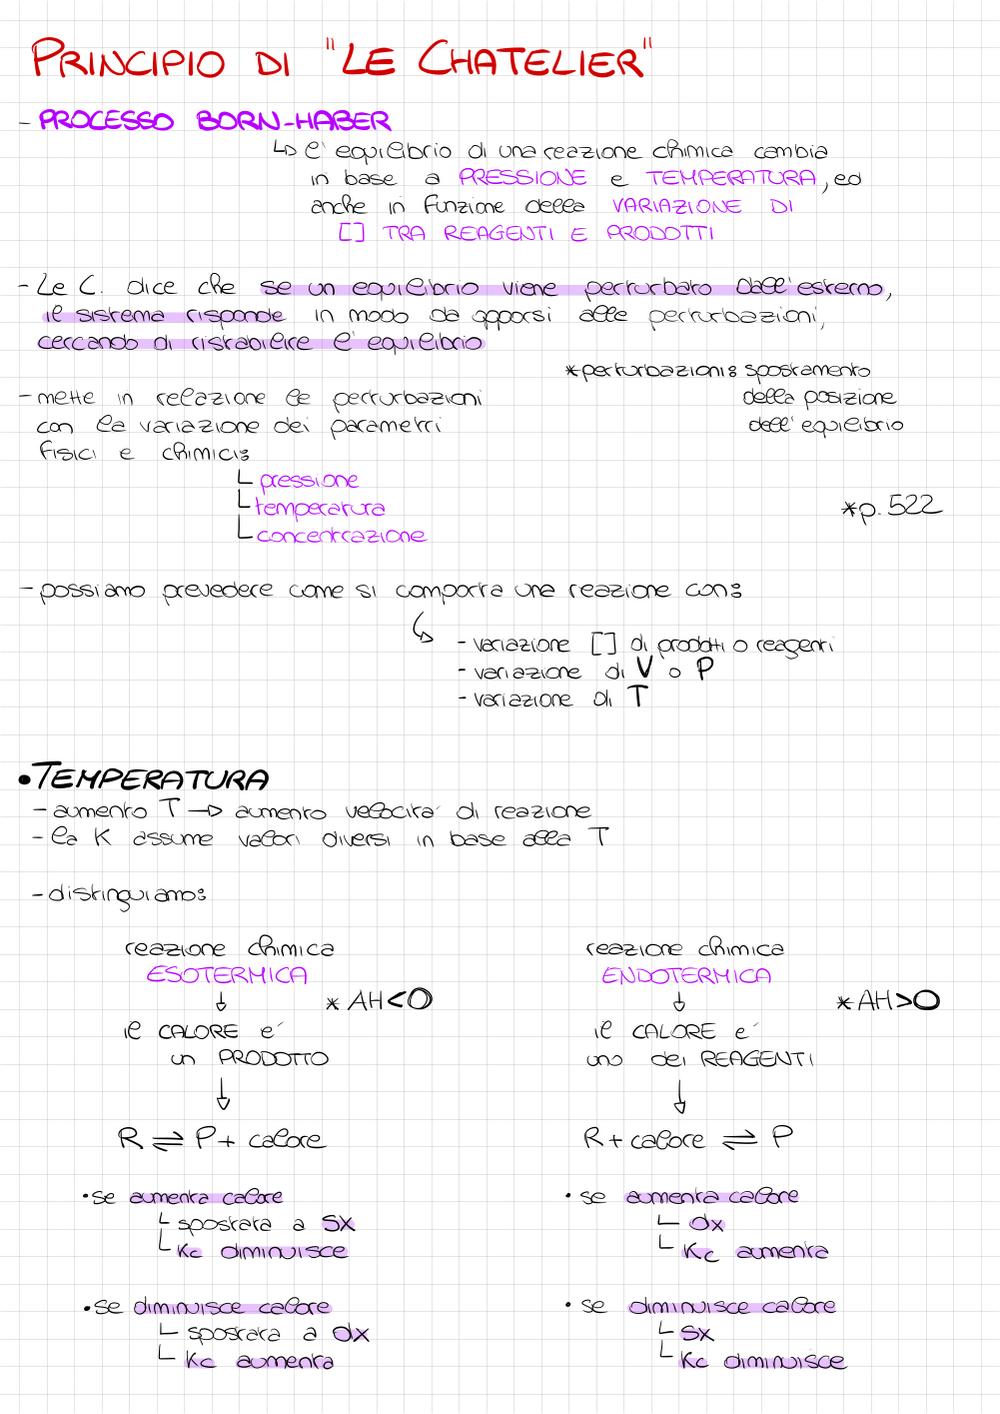 PRINCIPIO DI "LE CHATELIER"
- PROCESSO BORN-HABER
↳ l'equilibrio di una reazione chimica cambia
in base a PRESSIONE e TEMPERATURA, ed
anche in funzione della VARIAZIONE DI
[] TRA REAGENTI E PRODOTTI
- Le C. dice che se un equilibrio viene perturbato dall'esterno,
il sistema risponde in modo da opporsi alle perturbazioni,
cercando di ristabilire l'equilibrio
*perturbazioni: spostamento
della posizione
dell'equilibrio
- mette in relazione le perturbazioni
con la variazione dei parametri
fisici e chimici:
pressione
temperatura
concentrazione
*p. 522
- possiamo prevedere come si comporta una reazione con:
- variazione [] di prodotti o reagenti
- variazione di V o P
- variazione di T
• TEMPERATURA
- aumento T → aumento velocita' di reazione
- la K assume valori diversi in base alla T
- distinguiamo:
reazione chimica
ESOTERMICA
↓ * AH<0
il CALORE e'
un PRODOTTO
↓
R ⇌ P + calore
• se aumenta calore
spostata a sx
Kc diminuisce
• se diminuisce calore
spostata a dx
Kc aumenta
reazione chimica
ENDOTERMICA
↓ * AH>0
il CALORE e'
uno dei REAGENTI
↓
R + calore ⇌ P
• se aumenta calore
dx
Kc aumenta
• se diminuisce calore
sx
Kc diminuisce